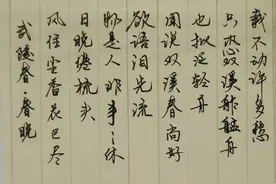 武陵春·春晚
风住尘香花已尽
日晚倦梳头
物是人非事々休
欲语泪先流
闻说双溪春尚好
也拟泛轻舟
只恐双溪舴艋舟
载不动许多愁